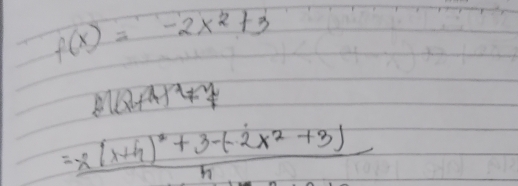 f(x) = -2x² + 3
= -2(x+h)² + 3-(-2x² + 3)
h